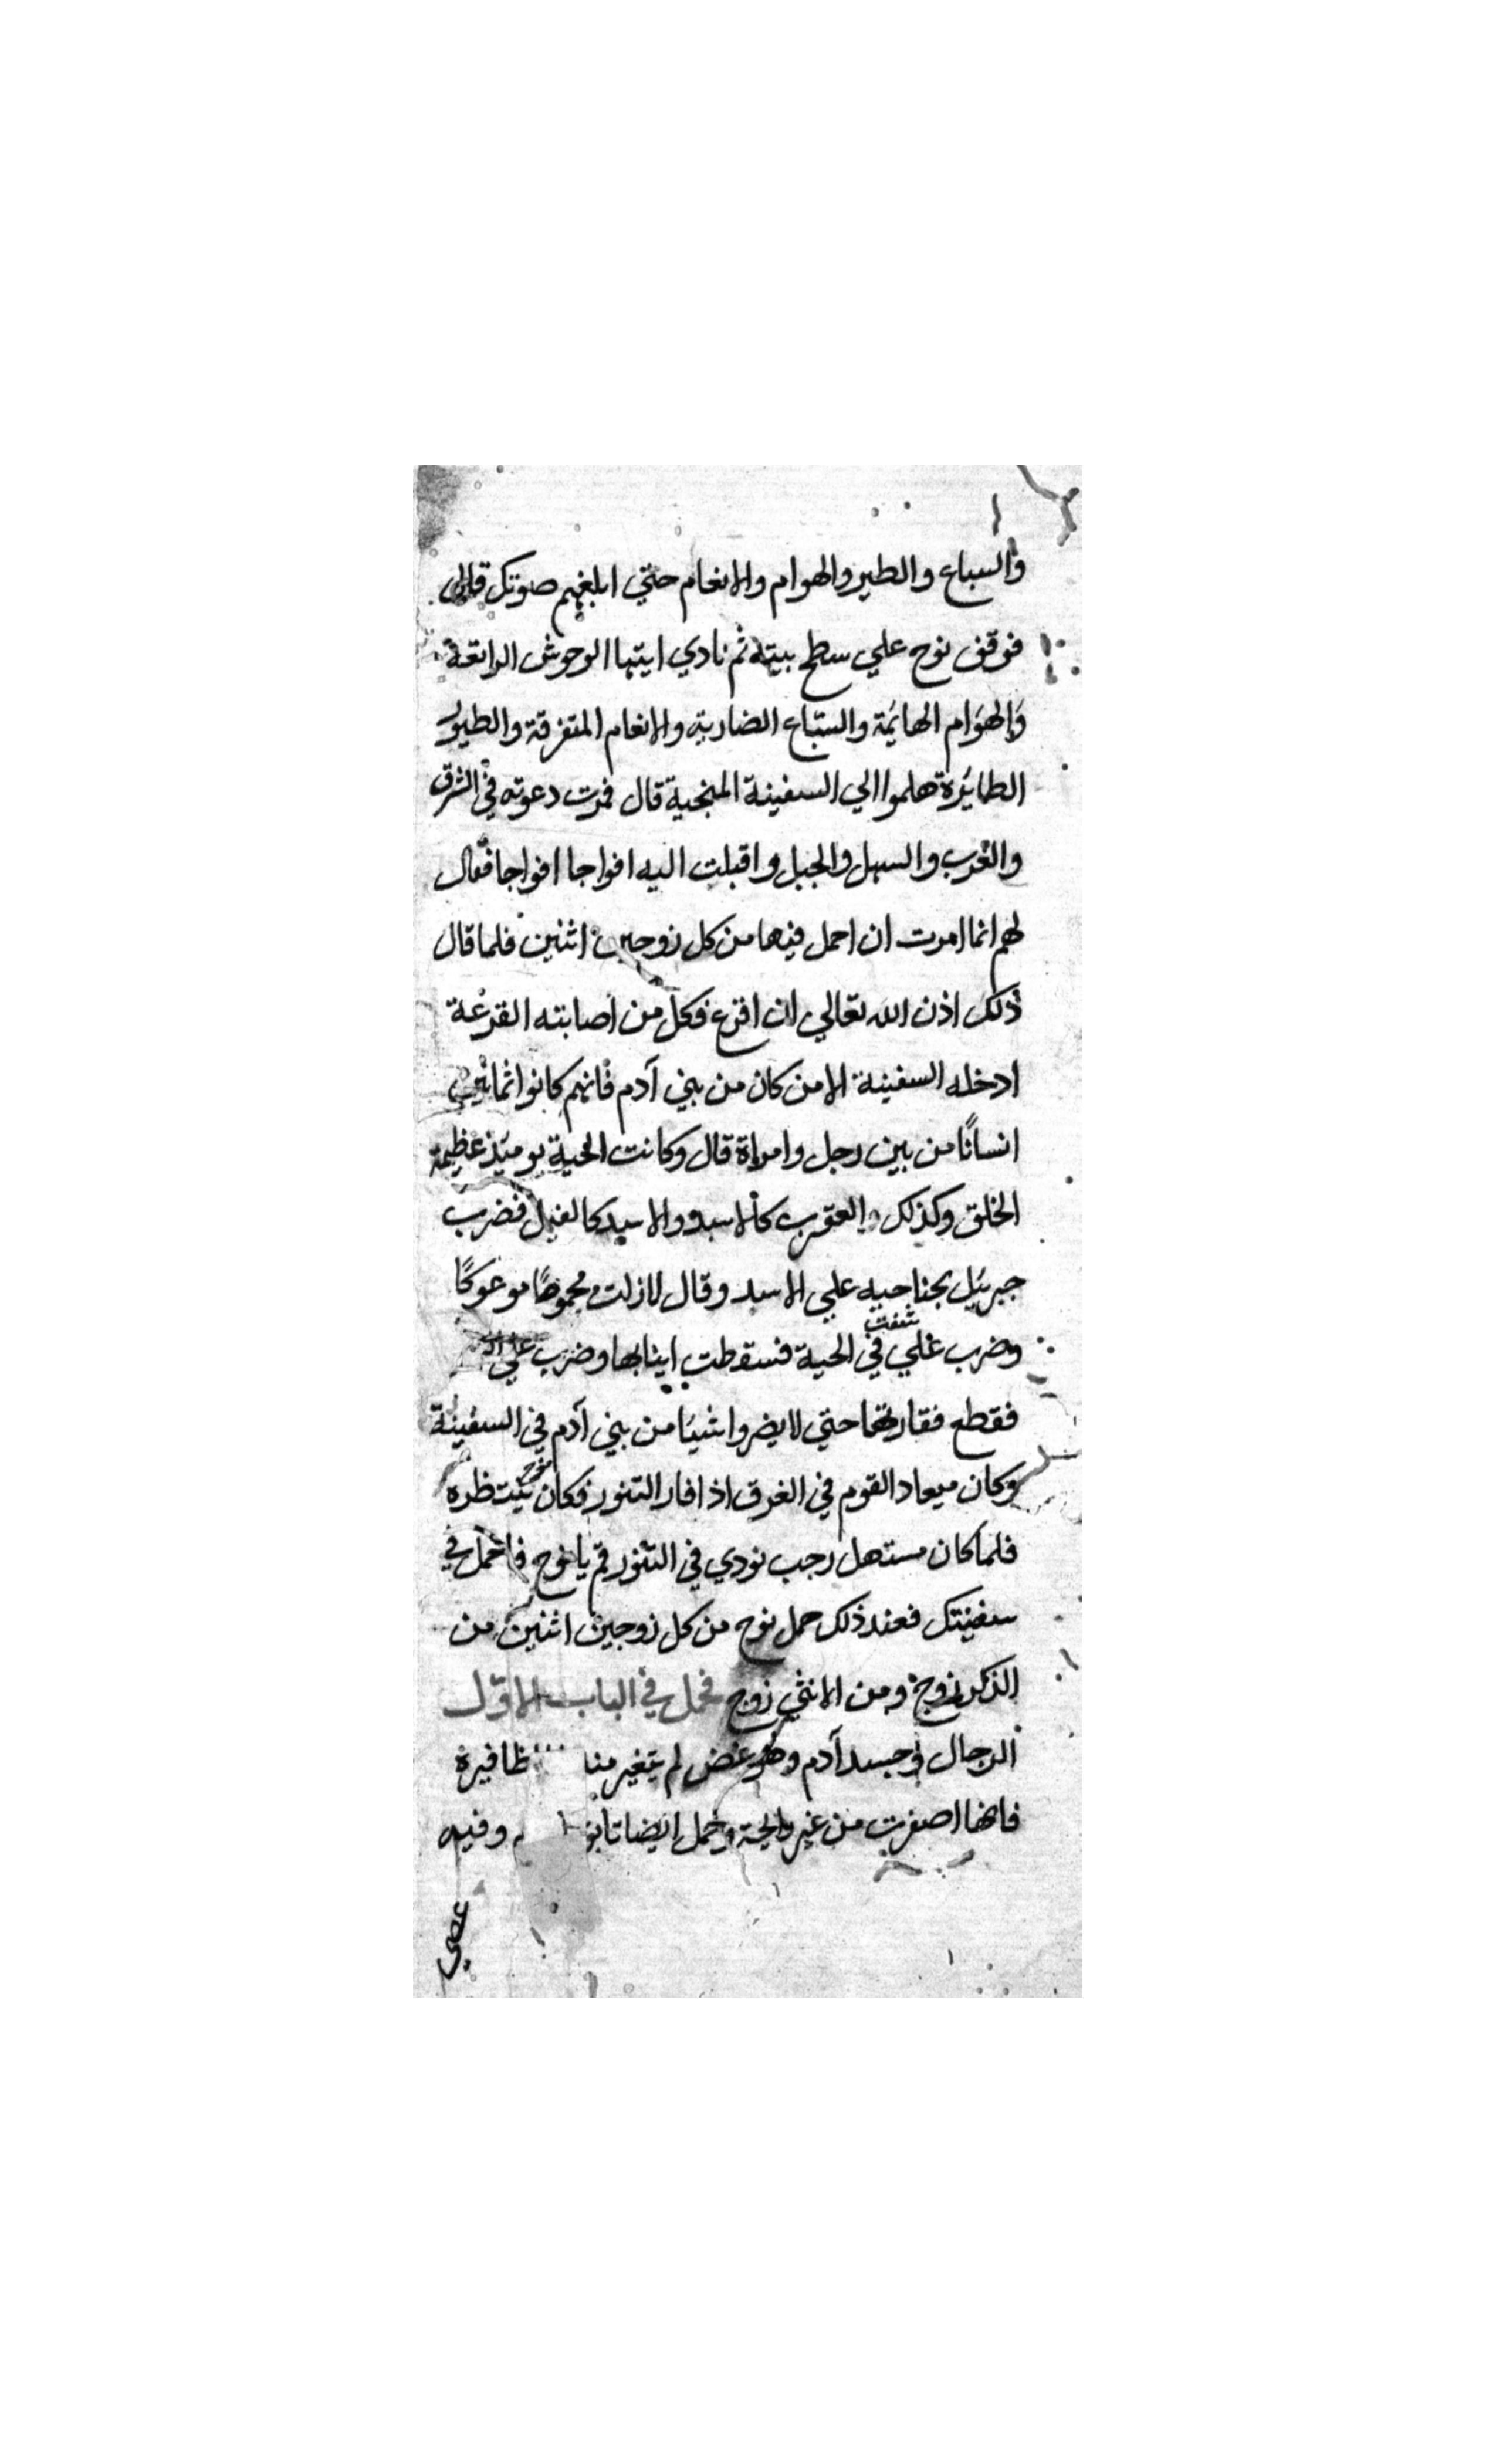 والسباع والطير والهوام والانعام حتي ابلغهم صوتك قال
فوقف نوح علي سطح بيته ثم نادي ايتها الوحوش الراتعة
والهوام الهايئمة والسباع الضارية والانعام المتفرقة والطيور
الطايئرة هلموا الي السفينة المنجية قال فمرت دعوته في الشرق
والغرب والسهل والجبل واقبلت اليه افواجا افواجا فقال
لهم انما امرت ان احمل فيها من كل زوجين اثنين فلما قال
ذلك اذن الله تعالي ان اقرع فكل من اصابته القرعة
ادخله السفينة الا من كان من بني آدم فانهم كانوا ثمانين
انسانًا من بين رجل وامراة قال وكانت الحية يوميئذ عظيمة
الخلق وكذلك العقرب كالاسد والاسد كالفيل فضرب
جبريئل بجناحيه علي الاسد وقال لازلت محموما موعوكًا
وضرب علي شفت في الحية فسقطت اينابها وضرب علي
فقطع فقارتها حتي لا يضروا شيئا من بني آدم في السفينة
وكان ميعاد القوم في الغرق اذا فار التنور فكان نوح ينتظره
فلما كان مستهل رجب نودي في التنور قم يا نوح فاحمل في
سفينتك فعند ذلك حمل نوح من كل زوجين اثنين من
الذكر زوج ومن الانثي زوج فحمل في الباب الاول
الرجال وجسد آدم وهو غض لم يتغير منا ظافيره
فانها اصفرت من غير رايحة وحمل ايضا تابو وفيه
عصي